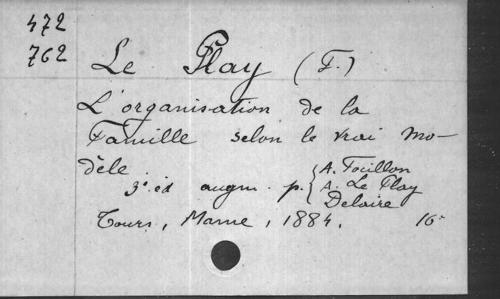 472
762
Le Play (F.)
L'organisation de la
Famille selon le vrai mo-
dèle.
3e éd augm. p. { A. Fouillon
A. Le Play
Delaire
Tours, Mame, 1884. 16°